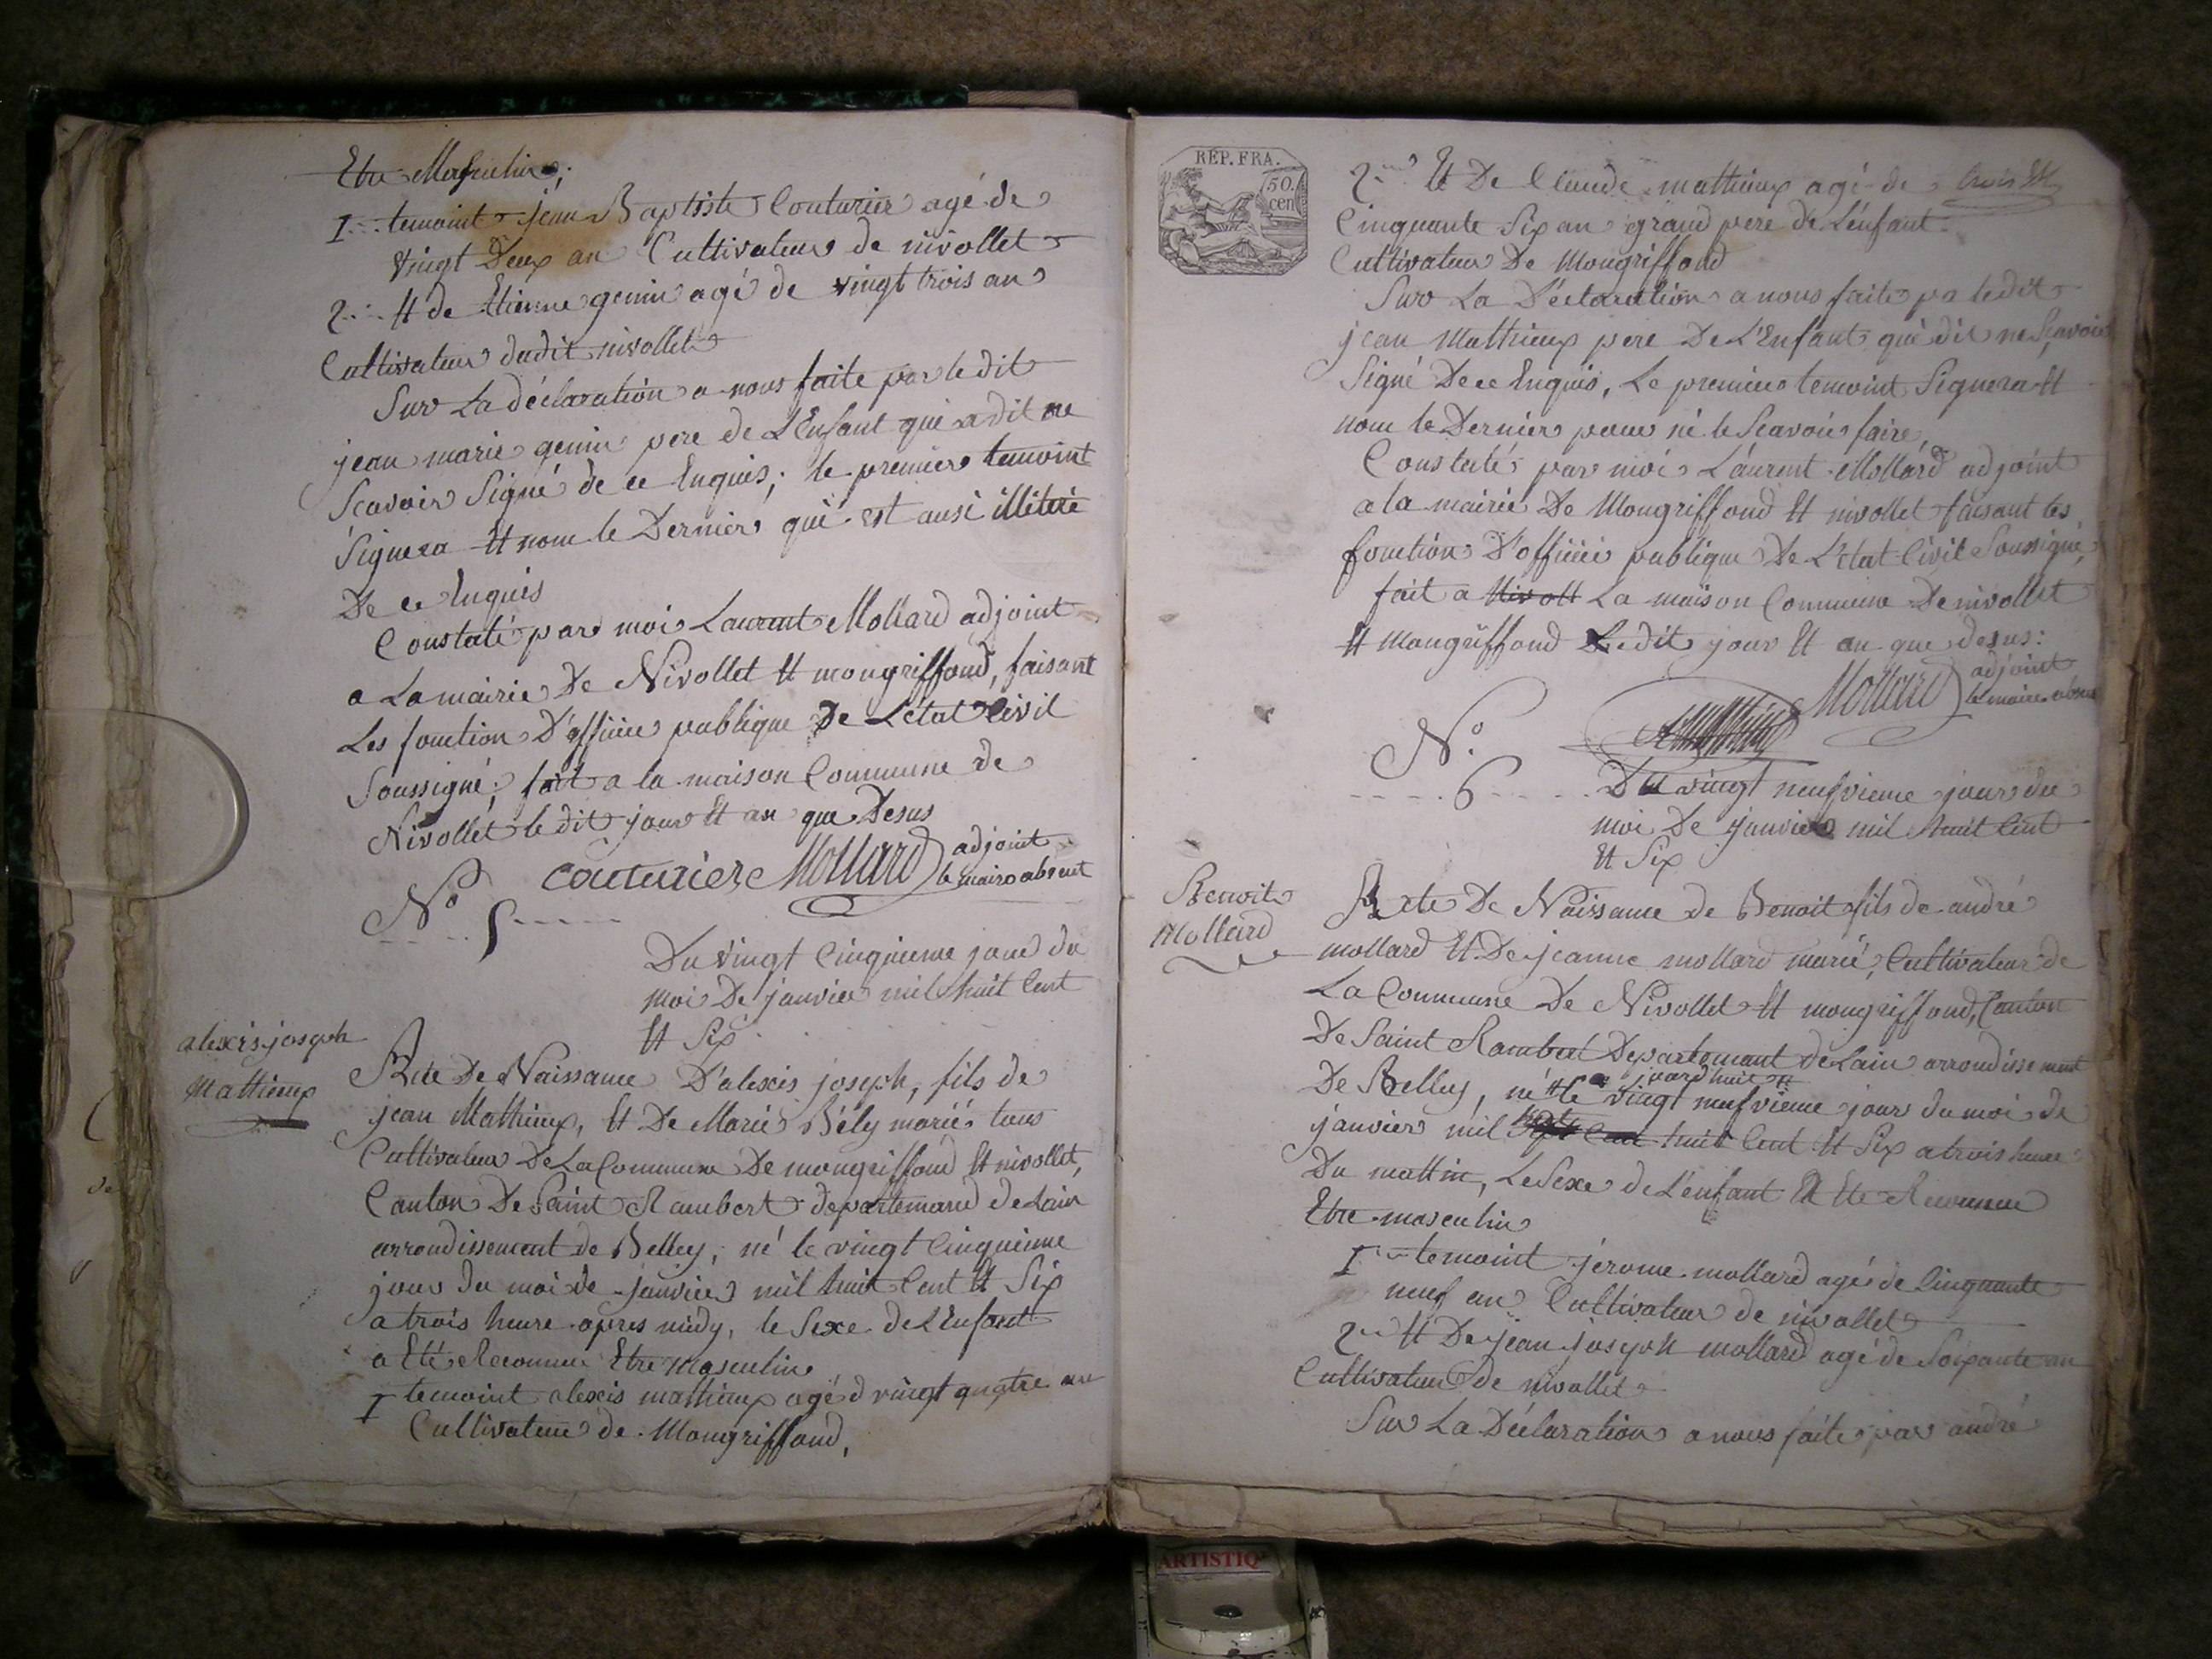 Etre Masculin;
1er temoint jean Baptiste Couturier agé de
vingt Deux an Cultivateur de nivollet
2. Et de Etienne genin agé de vingt trois an
Cultivateur dudit nivollet
Sur La déclaration a nous faite par le dit
jean marie genin pere de L'Enfant qui a dit ne
Scavoir Signé de ce Enquis; le premier temoint
Signera Et nom le Dernier qui est ausi illiteré
De ce Enquis
Constaté par moi Laurant Mollard adjoint
a La mairie De Nivollet Et mongriffond, faisant
Les fonction D'officier publique De L'état Civil
Soussigné; fait a la maison Commune de
Nivollet le dit jour Et an que Desus
couturier Mollard adjoint
le maire absent
No 5
Du vingt Cinquieme jour du
moi De janvier mil huit Cent
Et Six
alexis joseph
Mathieux
Acte De Naissance D'alexis joseph, fils de
jean Mathieux, Et De Marie Bély marié tous
Cultivateur De La Commune De mongriffond Et nivollet,
Canton De Saint Rambert departemand de Lain
arrondissement de Belley, né le vingt Cinquieme
jour du moi de janvier mil huit Cent Et Six
a trois heure apres midy, le Sexe de L'Enfant
a Eté Reconnue Etre masculin
1 temoint alexis mathieux agé d vingt quatre an
Cultivateur de Mongriffond,
REP. FRA.
50.
cen
2. Et De Claude mathieux agé de
Cinquante Six an grand pere de L'enfant
Cultivateur De Mongriffond
Sur La Déclaration a nous faite pa ledit
jean Mathieux pere De L'Enfant qui dit ne Scavoir
Signé De ce Enquis, Le premier temoint Signera Et
nom le Dernier pour né le Scavoir faire,
Constaté par moi Laurent Mollard adjoint
a la mairie De Mongriffond Et nivollet faisant les
fonction D'officier publique De L'Etat Civil Soussigné,
fait a Nivoll La maison Commune De nivollet
Et Mongriffond Ledit jour Et an que desus:
Mollard adjoint
le maire absent
No.
6
Du vingt neufvieme jour du
moi De janvier mil huit Cent
Et Six
Benoit
Mollard
Acte De Naissance de Benoit fils de andré
mollard Et De jeanne mollard marié, Cultivateur de
La Commune De Nivollet Et mongriffond, Canton
De Saint Rambert Departemant de Lain arrondissement
De Belley, né le vingt neufvieme jour du moi de
janvier mil huit Cent Et Six a trois heure
Du mattin, Le Sexe de L'enfant A Eté Reconnue
Etre masculin
1er temoint jerome mollard agé de Cinquante
neuf an Cultivateur de nivollet
2. Et De jean joseph mollard agé de Soixante an
Cultivateur de nivollet
Sur La Déclaration a nous faite par andré
ARTISTIQ